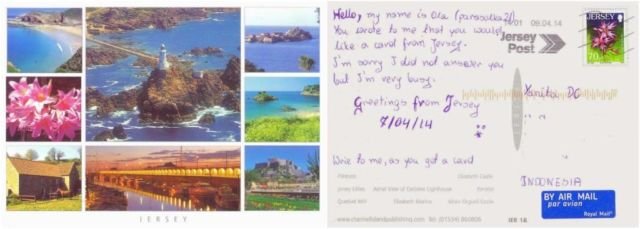 JERSEY
Hello, my name is Ola (parasolka21)
You wrote to me that you would
like a card from Jersey.
I'm sorry I did not answer you
but I'm very busy.
Greetings from Jersey
7/04/14
Write to me, as you got a card
09.04.14
Jersey
Post
JERSEY
70
DC
INDONESIA
BY AIR MAIL
par avion
Royal Mail
Elizabeth Castle
Jersey Lilies
Aerial View of Corbiere Lighthouse
Quetivel Mill
Elizabeth Marina
Mont Orgueil Castle
www.channelislandpublishing.com Tel: (01534)